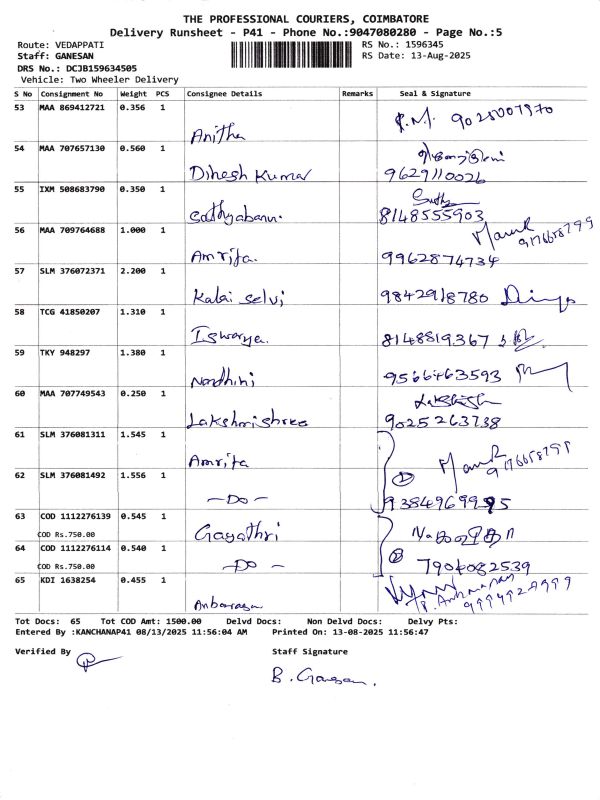 THE PROFESSIONAL COURIERS, COIMBATORE
Delivery Runsheet - P41 - Phone No.:9047080280 - Page No.:5
Route: VEDAPPATI RS No.: 1596345
Staff: GANESAN RS Date: 13-Aug-2025
DRS No.: DCJB159634505
Vehicle: Two Wheeler Delivery
S No Consignment No Weight PCS Consignee Details Remarks Seal & Signature
53 MAA 869412721 0.356 1
Anitha
54 MAA 707657130 0.560 1
Dinesh Kumar 9629110026
55 IXM 508683790 0.350 1
Sathyabanu. 8148555903
56 MAA 709764688 1.000 1
Amrita. 9962874734
57 SLM 376072371 2.200 1
Kalai selvi 9842918780
58 TCG 41850207 1.310 1
Iswarya. 8148819367
59 TKY 948297 1.380 1
Nandhini 9566463593
60 MAA 707749543 0.250 1
Lakshmishree 9025263738
61 SLM 376081311 1.545 1
Amrita
62 SLM 376081492 1.556 1
-Do-
63 COD 1112276139 0.545 1
COD Rs.750.00 Gayathri
64 COD 1112276114 0.540 1
COD Rs.750.00 -Do- 7904082539
65 KDI 1638254 0.455 1
Anbarasan
Tot Docs: 65 Tot COD Amt: 1500.00 Delvd Docs: Non Delvd Docs: Delvy Pts:
Entered By :KANCHANAP41 08/13/2025 11:56:04 AM Printed On: 13-08-2025 11:56:47
Verified By Staff Signature
B. Ganesan.